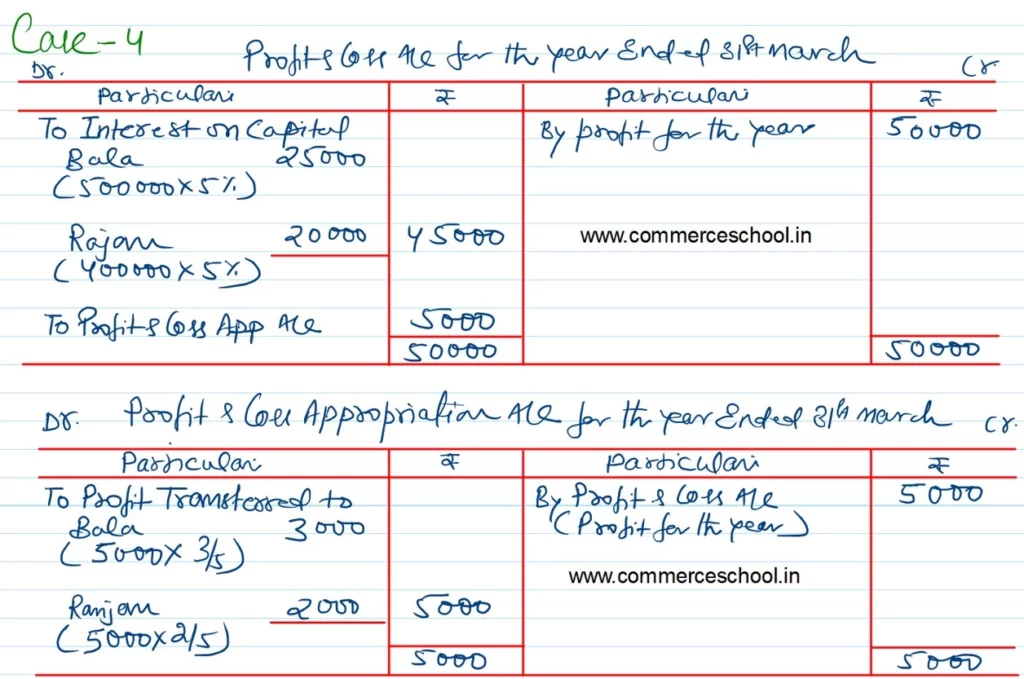 Case-4
Profit & Loss A/c for the year Ended 31st March
Dr.
Cr.
Particulars ₹ Particulars ₹
To Interest on Capital By profit for the year 50000
Bala 25000
(500000 x 5%)
Rajan 20000 45000 www.commerceschool.in
(400000 x 5%)
To Profit & Loss App A/c 5000
50000 50000
Dr. Profit & Loss Appropriation A/c for the year Ended 31st March Cr.
Particulars ₹ Particulars ₹
To Profit Transferred to By Profit & Loss A/c 5000
Bala 3000 (Profit for the year)
(5000 x 3/5)
www.commerceschool.in
Ranjan 2000 5000
(5000x2/5)
5000 5000